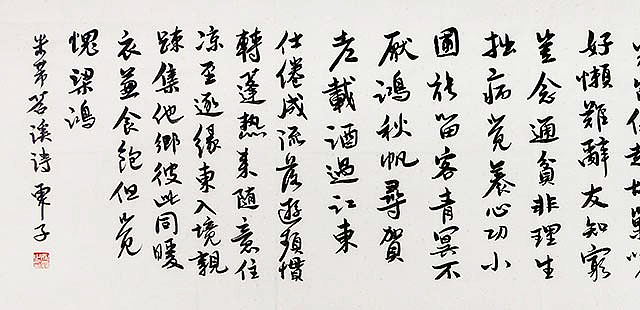 好懶難辭友知窮
豈念通貧非理生
拙病覺養心功小
圃能留客青冥不
厭鴻秋帆尋賀
老載酒過江東
仕倦成流落遊頻慣
轉蓬熱來隨意住
涼至逐緣東入境親
疎集他鄉彼此同暖
衣兼食飽但覺
愧梁鴻
米芾苕溪詩